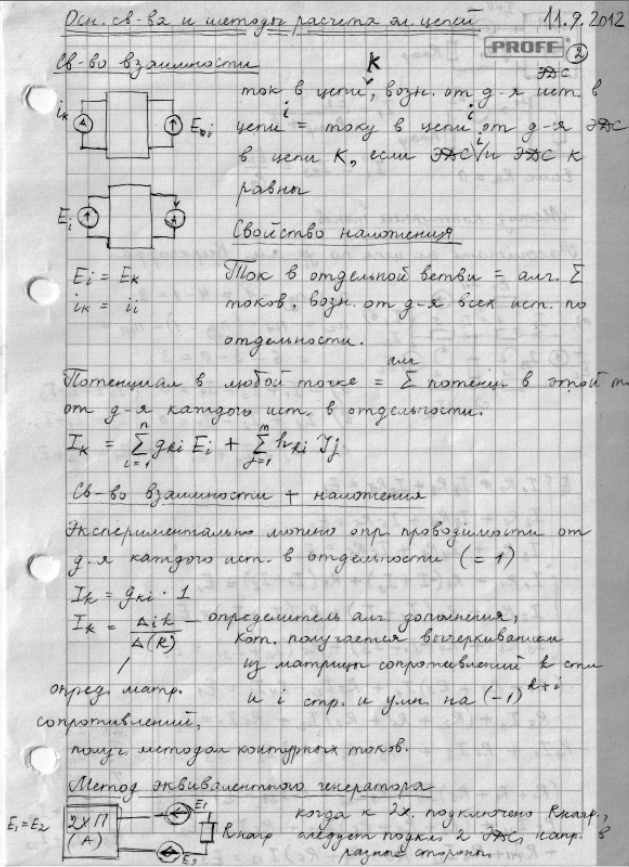 Осн. св-ва и методы расчета эл. цепей 11.9.2012
PROFF 2
Св-во взаимности
K
ток в цепи, возн. от д-я ист. ЭДС в
цепи i = току в цепи i от д-я ЭДС
в цепи K, если ЭДС i и ЭДС K
равны
iк A E i
Ei A
Свойство наложения
Ei = Eк
iк = ii
Ток в отдельной ветви = алг. Σ
токов, возн. от д-я всех ист. по
отдельности.
Потенциал в любой точке = алг Σ потенц. в этой т
от д-я каждого ист. в отдельности.
Iк = Σ i=1 n gкi Ei + Σ j=1 m hкi Jj
Св-во взаимности + наложения
Экспериментально можно опр. проводимости от
д-я каждого ист. в отдельности (=1)
Iк = gкi · 1
Iк = Δik / Δ(R) – определитель алг. дополнения,
кот. получается вычеркиванием
из матрицы сопротивлений k стл
и i стр. и умн. на (-1)^k+i
опред. матр.
сопротивлений,
получ. методом контурных токов.
Метод эквивалентного генератора
E1=E2 2ХП (A) E1 E2 Rнагр
когда к 2х. подключено Rнагр.,
следует подкл. 2 ЭДС, напр. в
разные стороны